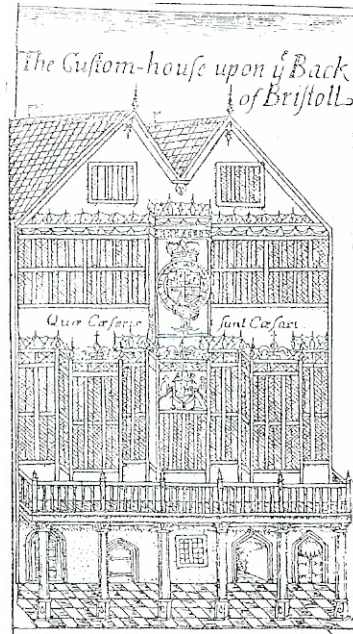 The Cuſtom-houſe upon yᵉ Back
of Briſtoll
Quæ Cæſaris ſunt Cæſari.